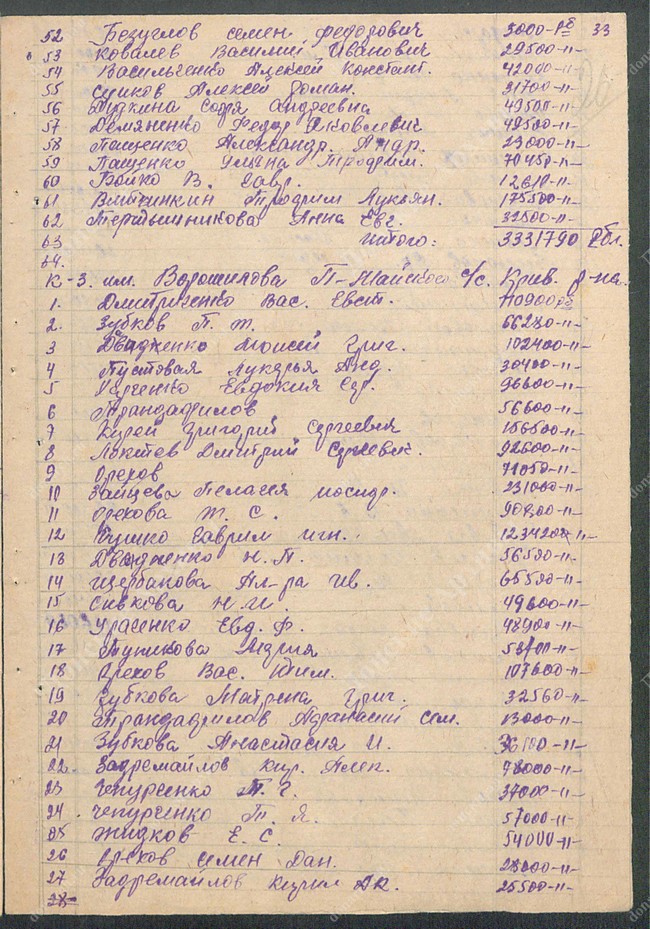 33
52 Безуглов семен федорович 5000-р
53 Ковалев Василий Иванович 29500-11-
54 Васильченко Алексей Констант. 42000-11-
55 Алексей Роман. 31700-11-
56 Андреевна 49500-11-
57 Демяненко Федор Яковлевич 49500-11-
58 Пащенко Александр. Андр. 29000-11-
59 Пащенко Улияна Трофим. 70450-11-
60 Бойко В. Гавр.
61 Трофим Лукьян. 175500-11-
62 Анна Евг. 32500-11-
63 Итого: 3331790 Рбл.
64.
К-з. им. Ворошилова П-Майского с/с. Крив. р-на.
1. Дмитриенко Вас. Евст.
2. Зубков П. Т. 66280-11-
3 Двидженко Моисей Григ. 102400-11-
4 Пустовая Лукерья Анд. 30400-11-
5 Евдокия 96600-11-
6 Трандафилов 56600-11-
7 Григорий Сергеевич 156500-11-
8 Локтев Дмитрий Сергеевич. 92600-11-
9 Орехов 71050-11-
10 Зайцева Пелагия 231000-11-
11 Орехова Т. С. 90800-11-
12 Гаврил Игн.
13 Двидженко Н. П. 56500-11-
14 Щербакова Ал-ра Ив. 65500-11-
15 Сивкова Н. И. 49600-11-
16 Урасенко Евд. Ф. 48900-11-
17 Мария
18 Орехов Вас. Тим. 107600-11-
19 Зубкова Матрена Григ. 32560-11-
20 Трандафилов Афанасий Сем. 13000-11-
21 Зубкова Анастасия И.
22. Задремайлов Кир. Алек. 98000-11-
23 Чепурченко Т. Г. 37000-11-
24. Чепурченко Т. Я. 57000-11-
25 Жидков Е. С. 54000-11-
26 Орехов семен Дан. 28000-11-
27 Задремайлов Ак. 25500-11-
28